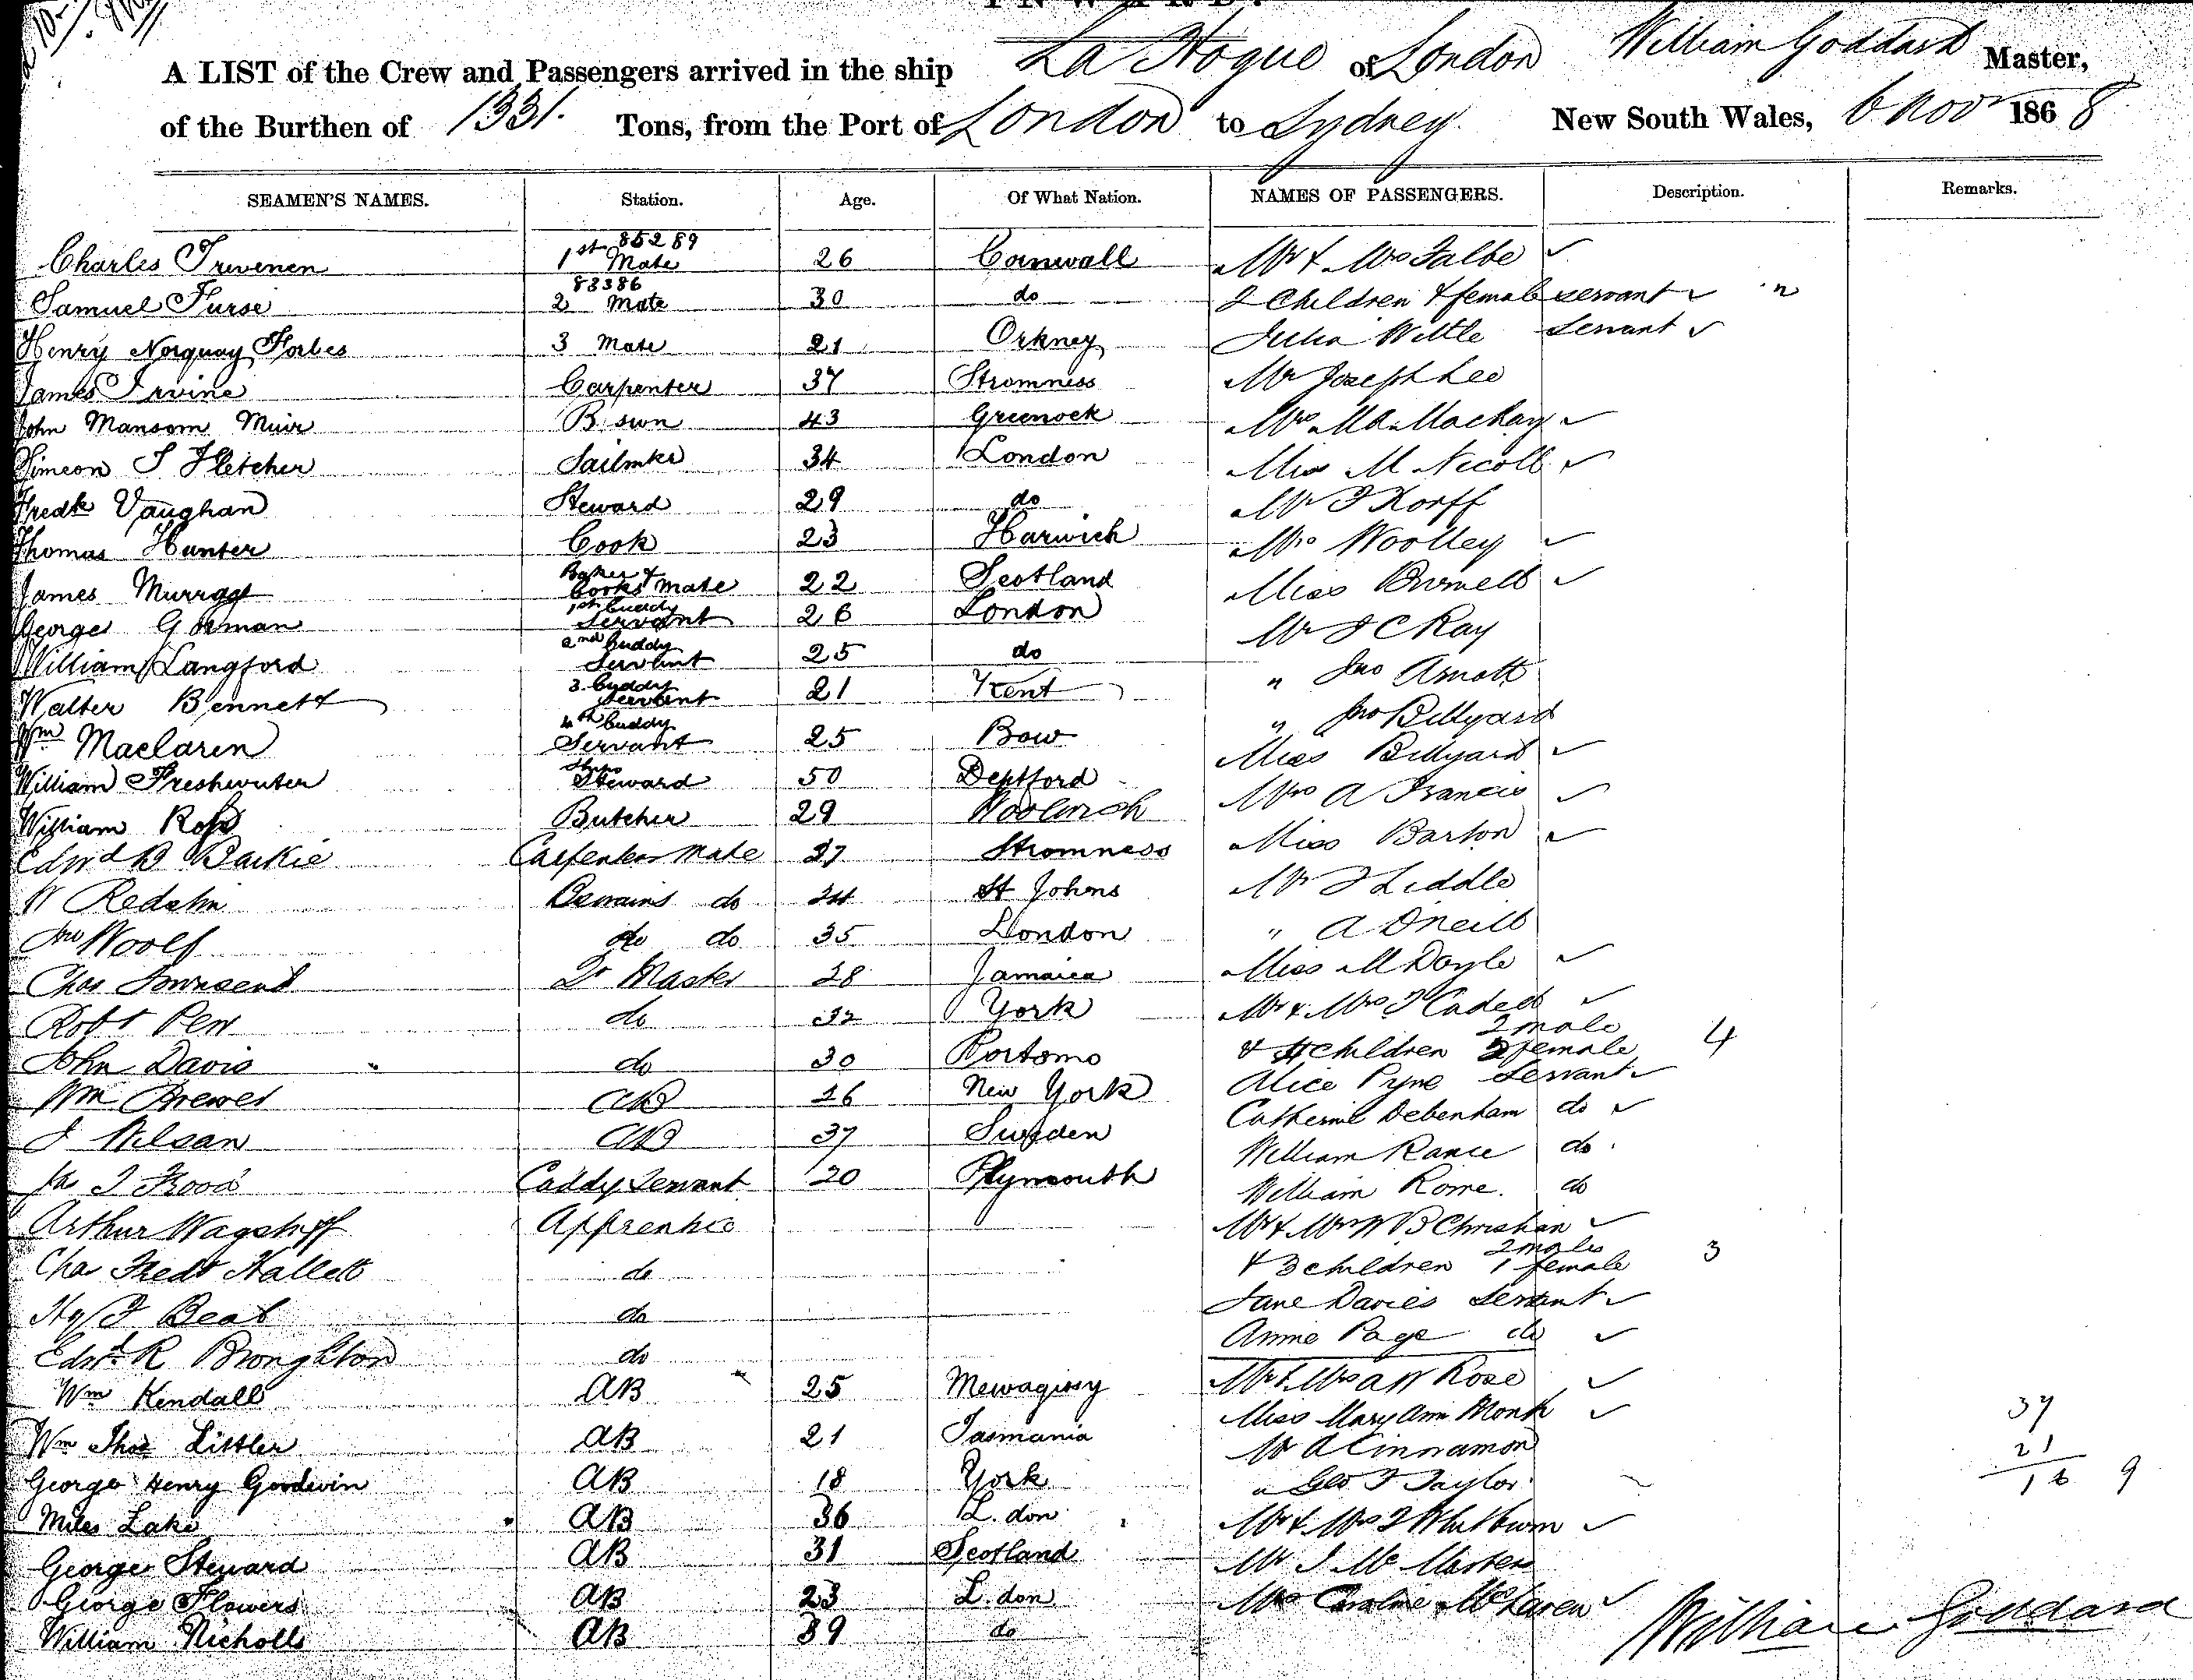 A LIST of the Crew and Passengers arrived in the ship La Hogue of London William Goddard Master,
of the Burthen of 1331. Tons, from the Port of London to Sydney. New South Wales, 6 Nov 1868
SEAMEN'S NAMES. Station. Age. Of What Nation. NAMES OF PASSENGERS. Description. Remarks.
Charles Trevenen 1st 85289 Mate 26 Cornwall Mr & Mrs Falbe
Samuel Furse 83386 2 Mate 30 do 2 Children & female servant
Henry Norquay Forbes 3 Mate 21 Orkney Julia Wittle Servant
James Irvine Carpenter 37 Stromness Mr Joseph Lee
John Mansom Muir B. swn 43 Greenock Mrs Mackay
Simeon J Fletcher Sailmkr 34 London Miss M Nicoll
Fredk Vaughan Steward 29 do Mr F Korff
Thomas Hunter Cook 23 Harwich Mrs Woolley
James Murray Baker & Cooks Mate 22 Scotland Miss
George Gorman 1st Cuddy Servant 26 London Mr J C Ray
William Langford 2nd Cuddy Servant 25 do " Jno Arnott
Walter Bennett 3. Cuddy Servant 21 Kent " Jno Billyard
Wm Maclaren 4th Cuddy Servant 25 Bow Miss Billyard
William Freshwater Ships Steward 50 Deptford Mrs A Francis
William Ross Butcher 29 Woolwich Miss Barton
Edwd B Baikie Carpenters Mate 27 Stromness Mr J Liddle
W Redstin do 24 St Johns " A O'Neill
Jno Woolf do do 35 London Miss M Doyle
Chas Townsend Qr Master 28 Jamaica Mr & Mrs T Cadell
Robt Pew do 32 York & 4 children 2 male 2 female 4
John Davis do 30 Alice Pyne Servant
Wm Brewer AB 26 New York Catherine Debenham do
J Wilson AB 37 Sweden William Rance do
Jas J Frood Cuddy Servant 20 Plymouth William Rome. do
Arthur Wagstaff Apprentice Mr & Mrs W B Christian
Chas Fredk Hallett do & 3 children 2 males 1 female 3
Hy J Beal do Jane Davies Servant
Edwd R Broughton do Annie Page do
Wm Kendall AB 25 Mewagissy Mr & Mrs A W Rose
Wm Thos Littler AB 21 Tasmania Miss Mary Ann Monk 37
George Henry Goodwin AB 18 York Mr A Cinnamon 21
Miles Lake AB 36 L. don " Geo F Taylor 16 9
George Steward AB 31 Scotland Mr & Mrs J Whitburn
George Flowers AB 23 L. don Mr J Mc Masters
William Nicholls AB 39 do Mrs Caroline McLaren
William Goddard